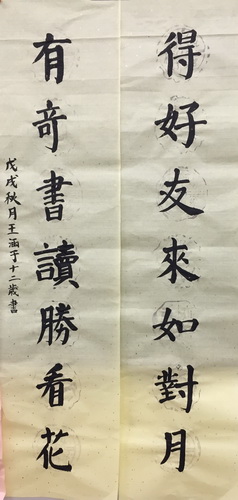 得好友來如對月
有奇書讀勝看花
戊戌秋月王涵于十二歲書